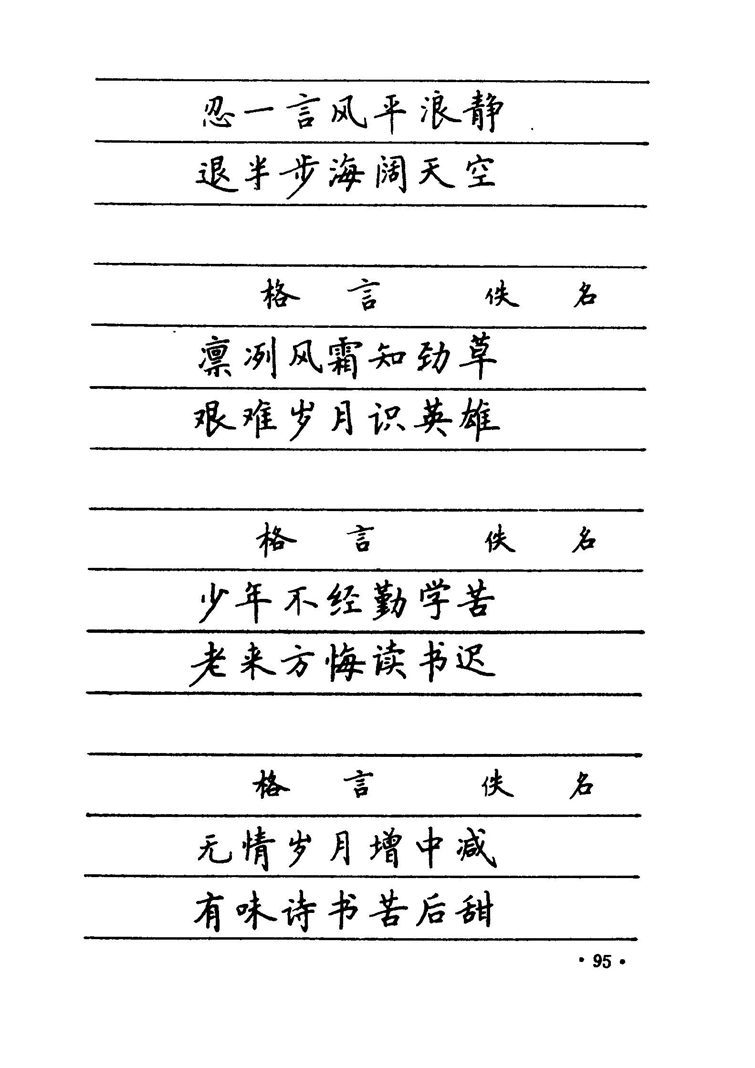 忍一言风平浪静
退半步海阔天空
格言 佚名
凛冽风霜知劲草
艰难岁月识英雄
格言 佚名
少年不经勤学苦
老来方悔读书迟
格言 佚名
无情岁月增中减
有味诗书苦后甜
·95·